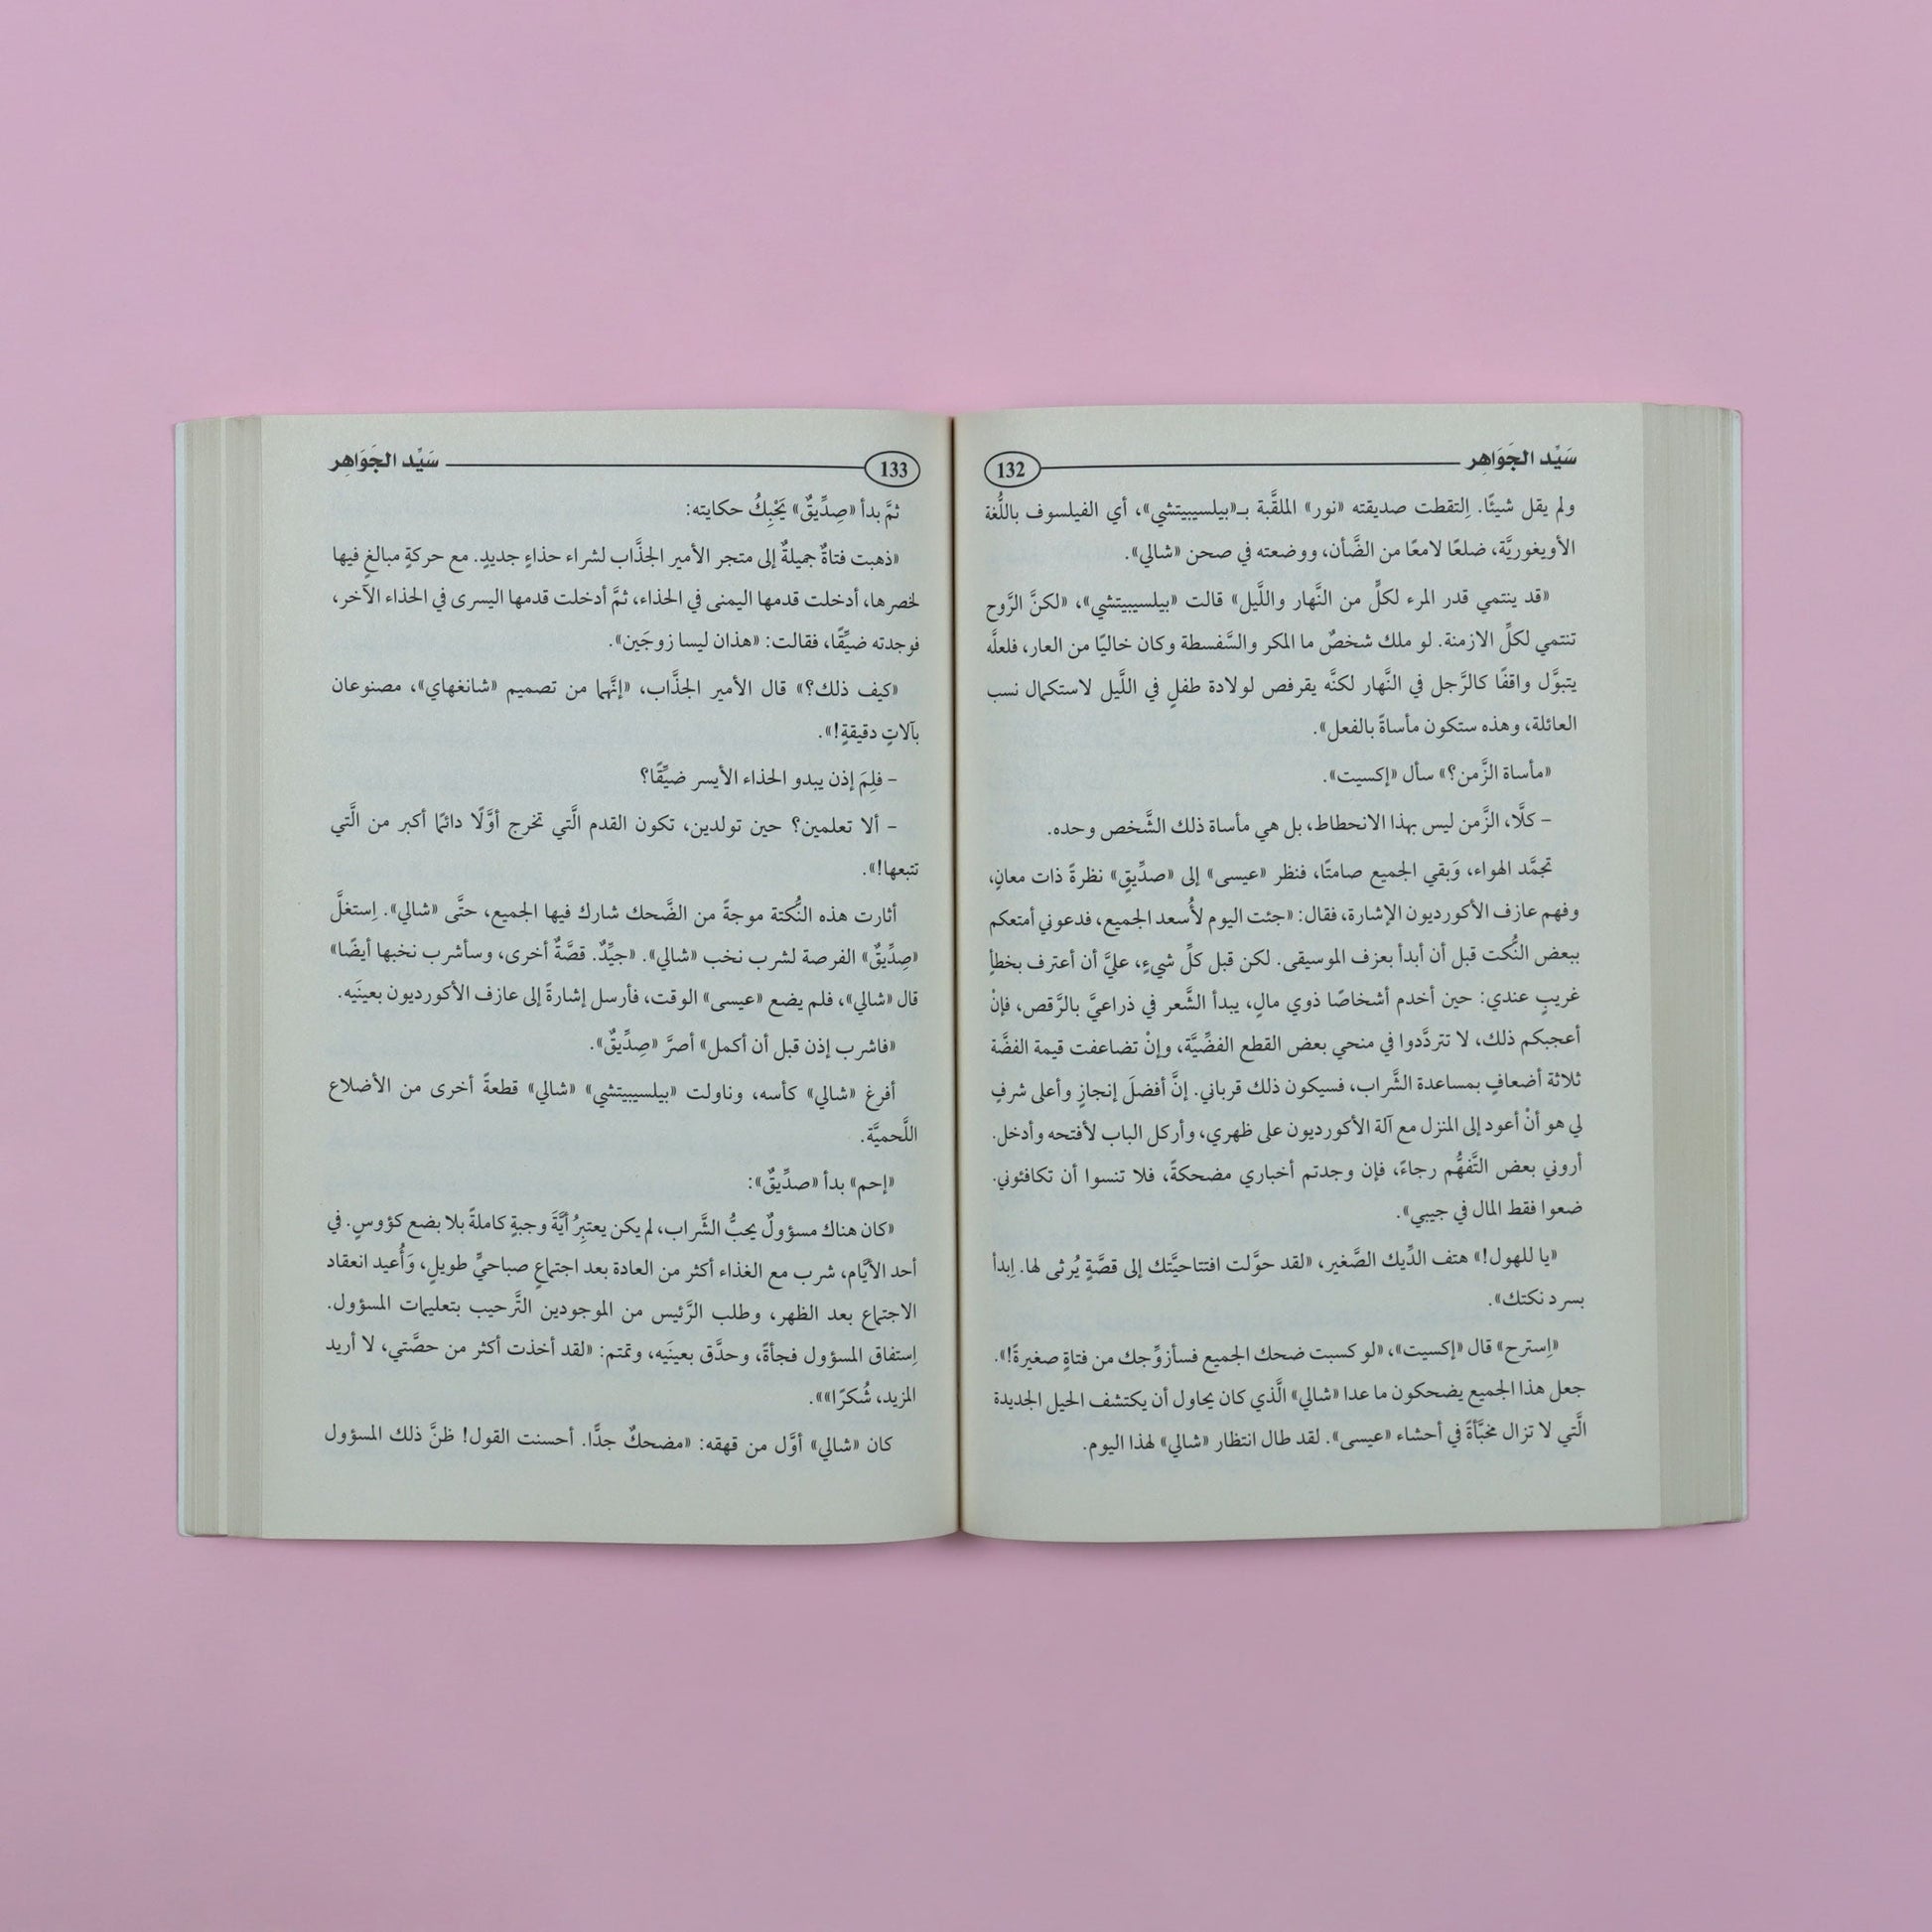 سَيِّد الجَوَاهِر 132
ولم يقل شيئًا. اِلتقطت صديقته «نور» الملقَّبة بـ«بيلسيبيتشي»، أي الفيلسوف باللُّغة
الأويغوريَّة، ضلعًا لامعًا من الضَّأن، ووضعته في صحن «شالي».
«قد ينتمي قدر المرء لكلِّ من النَّهار واللَّيل» قالت «بيلسيبيتشي»، «لكنَّ الرَّوح
تنتمي لكلِّ الازمنة. لو ملك شخصٌ ما المكر والسَّفسطة وكان خاليًا من العار، فلعلَّه
يتبوَّل واقفًا كالرَّجل في النَّهار لكنَّه يقرفص لولادة طفلٍ في اللَّيل لاستكمال نسب
العائلة، وهذه ستكون مأساةً بالفعل».
«مأساة الزَّمن؟» سأل «إكسيت».
– كلَّا، الزَّمن ليس بهذا الانحطاط، بل هي مأساة ذلك الشَّخص وحده.
تجمَّد الهواء، وَبقي الجميع صامتًا، فنظر «عيسى» إلى «صدِّيقٍ» نظرةً ذات معانٍ،
وفهم عازف الأكورديون الإشارة، فقال: «جئت اليوم لأُسعد الجميع، فدعوني أمتعكم
ببعض النُّكت قبل أن أبدأ بعزف الموسيقى. لكن قبل كلِّ شيءٍ، عليَّ أن أعترف بخطأٍ
غريبٍ عندي: حين أخدم أشخاصًا ذوي مالٍ، يبدأ الشَّعر في ذراعيَّ بالرَّقص، فإنْ
أعجبكم ذلك، لا تتردَّدوا في منحي بعض القطع الفضِّيَّة، وإنْ تضاعفت قيمة الفضَّة
ثلاثة أضعافٍ بمساعدة الشَّراب، فسيكون ذلك قرباني. إنَّ أفضلَ إنجازٍ وأعلى شرفٍ
لي هو أنْ أعود إلى المنزل مع آلة الأكورديون على ظهري، وأركل الباب لأفتحه وأدخل.
أروني بعض التَّفهُّم رجاءً، فإن وجدتم أخباري مضحكةً، فلا تنسوا أن تكافئوني.
ضعوا فقط المال في جيبي».
«يا للهول!» هتف الدِّيك الصَّغير، «لقد حوَّلت افتتاحيَّتك إلى قصَّةٍ يُرثى لها. اِبدأ
بسرد نكتك».
«اِسترح» قال «إكسيت»، «لو كسبت ضحك الجميع فسأزوِّجك من فتاةٍ صغيرةً!».
جعل هذا الجميع يضحكون ما عدا «شالي» الَّذي كان يحاول أن يكتشف الحيل الجديدة
الَّتي لا تزال مخبَّأةً في أحشاء «عيسى». لقد طال انتظار «شالي» لهذا اليوم.
133 سَيِّد الجَوَاهِر
ثمَّ بدأ «صِدِّيقٌ» يَحْبِكُ حكايته:
«ذهبت فتاةٌ جميلةٌ إلى متجر الأمير الجذَّاب لشراء حذاءٍ جديدٍ. مع حركةٍ مبالغٍ فيها
لخصرها، أدخلت قدمها اليمنى في الحذاء، ثمَّ أدخلت قدمها اليسرى في الحذاء الآخر،
فوجدته ضيِّقًا، فقالت: «هذان ليسا زوجَين».
«كيف ذلك؟» قال الأمير الجذَّاب، «إنَّهما من تصميم «شانغهاي»، مصنوعان
بآلاتٍ دقيقةٍ!».
– فلِمَ إذن يبدو الحذاء الأيسر ضيِّقًا؟
– ألا تعلمين؟ حين تولدين، تكون القدم الَّتي تخرج أوَّلًا دائمًا أكبر من الَّتي
تتبعها!».
أثارت هذه النُّكتة موجةً من الضَّحك شارك فيها الجميع، حتَّى «شالي». اِستغلَّ
«صِدِّيقٌ» الفرصة لشرب نخب «شالي». «جيِّدٌ. قصَّةٌ أخرى، وسأشرب نخبها أيضًا»
قال «شالي»، فلم يضع «عيسى» الوقت، فأرسل إشارةً إلى عازف الأكورديون بعينَيه.
«فاشرب إذن قبل أن أكمل» أصرَّ «صِدِّيقٌ».
أفرغ «شالي» كأسه، وناولت «بيلسيبيتشي» «شالي» قطعةً أخرى من الأضلاع
اللَّحميَّة.
«إحم» بدأ «صدِّيقٌ»:
«كان هناك مسؤولٌ يحبُّ الشَّراب، لم يكن يعتبِرُ أيَّةَ وجبةٍ كاملةً بلا بضع كؤوسٍ. في
أحد الأيَّام، شرب مع الغذاء أكثر من العادة بعد اجتماعٍ صباحيٍّ طويلٍ، وَأُعيد انعقاد
الاجتماع بعد الظهر، وطلب الرَّئيس من الموجودين التَّرحيب بتعليمات المسؤول.
اِستفاق المسؤول فجأةً، وحدَّق بعينَيه، وتمتم: «لقد أخذت أكثر من حصَّتي، لا أريد
المزيد، شُكرًا»».
كان «شالي» أوَّل من قهقه: «مضحكٌ جدًّا. أحسنت القول! ظنَّ ذلك المسؤول